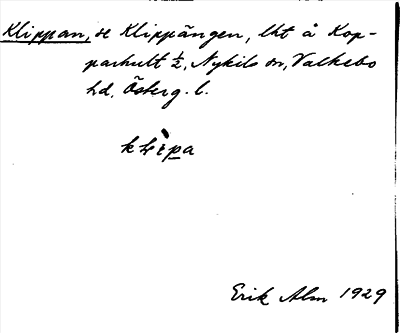 Klippan, se Klippängen, lht å Kop-
parhult ½, Nykils sn, Valkebo
hd, Österg. l.
Erik Alm 1929